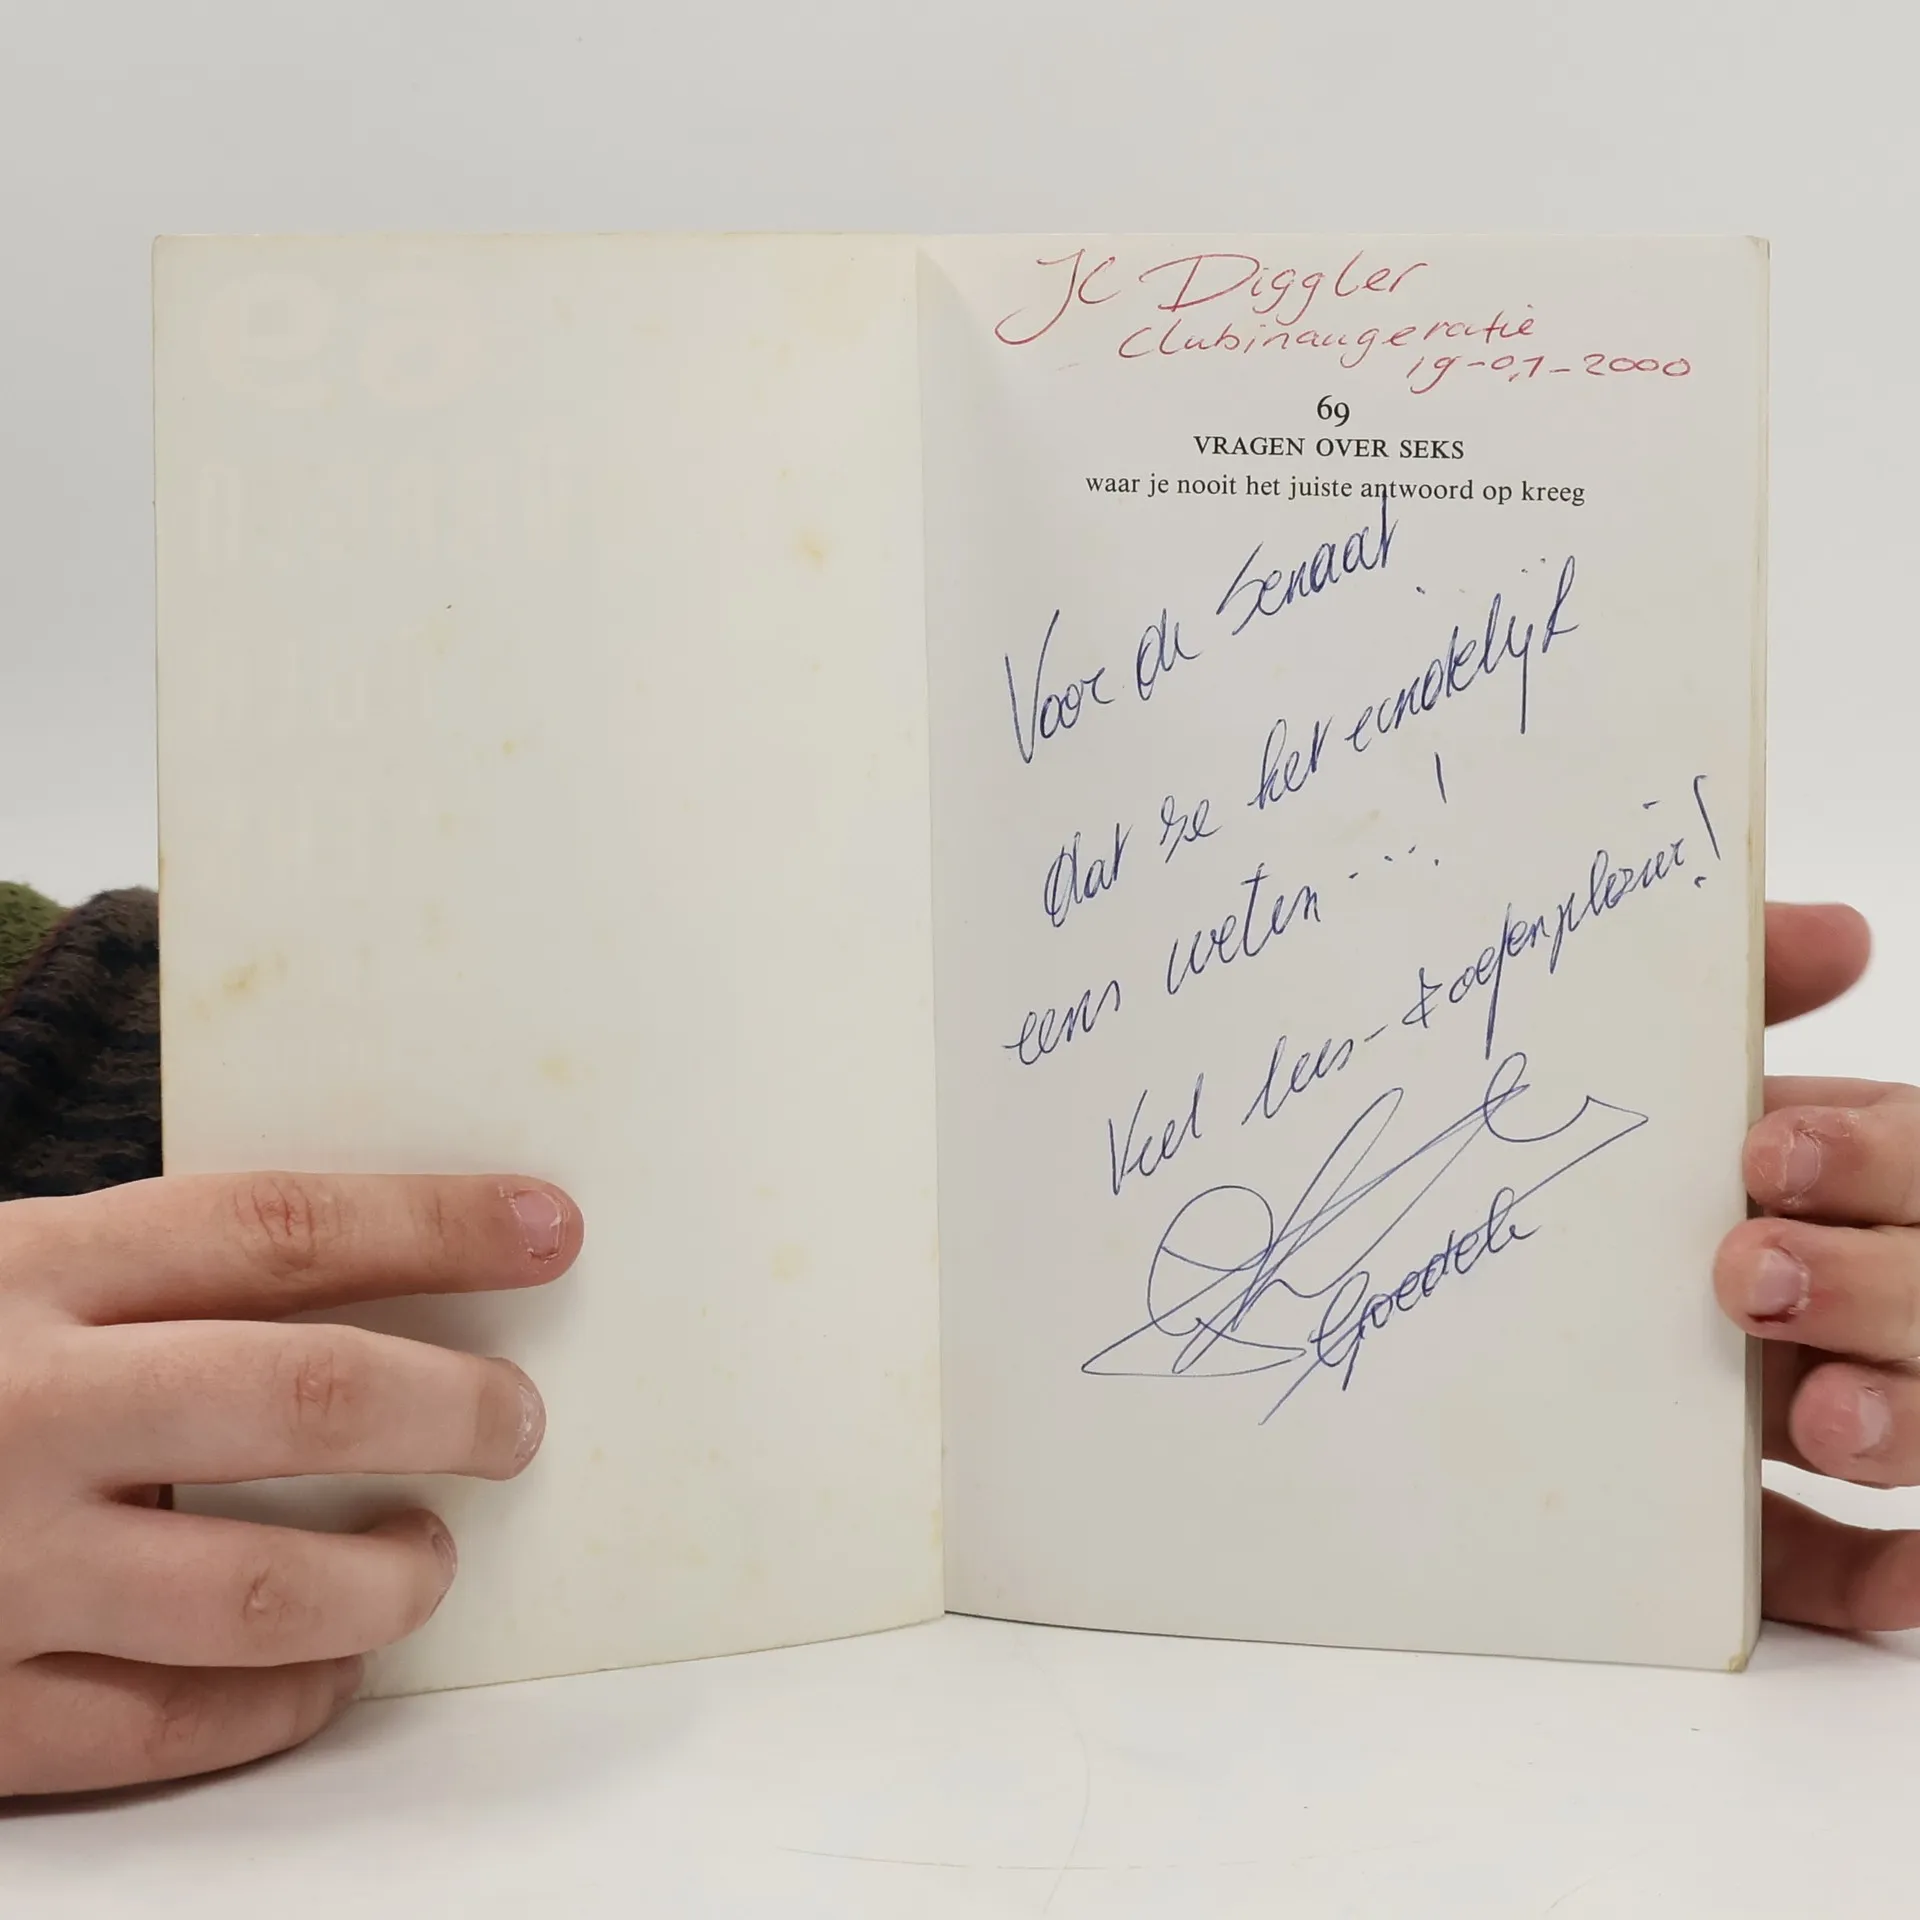 JC Diggler
Clubinaugeratie
19-01-2000
69
VRAGEN OVER SEKS
waar je nooit het juiste antwoord op kreeg
Voor de Senaat
dat ze het eindelijk
eens weten...!
Veel lees- & oefenplezier!
Goedele